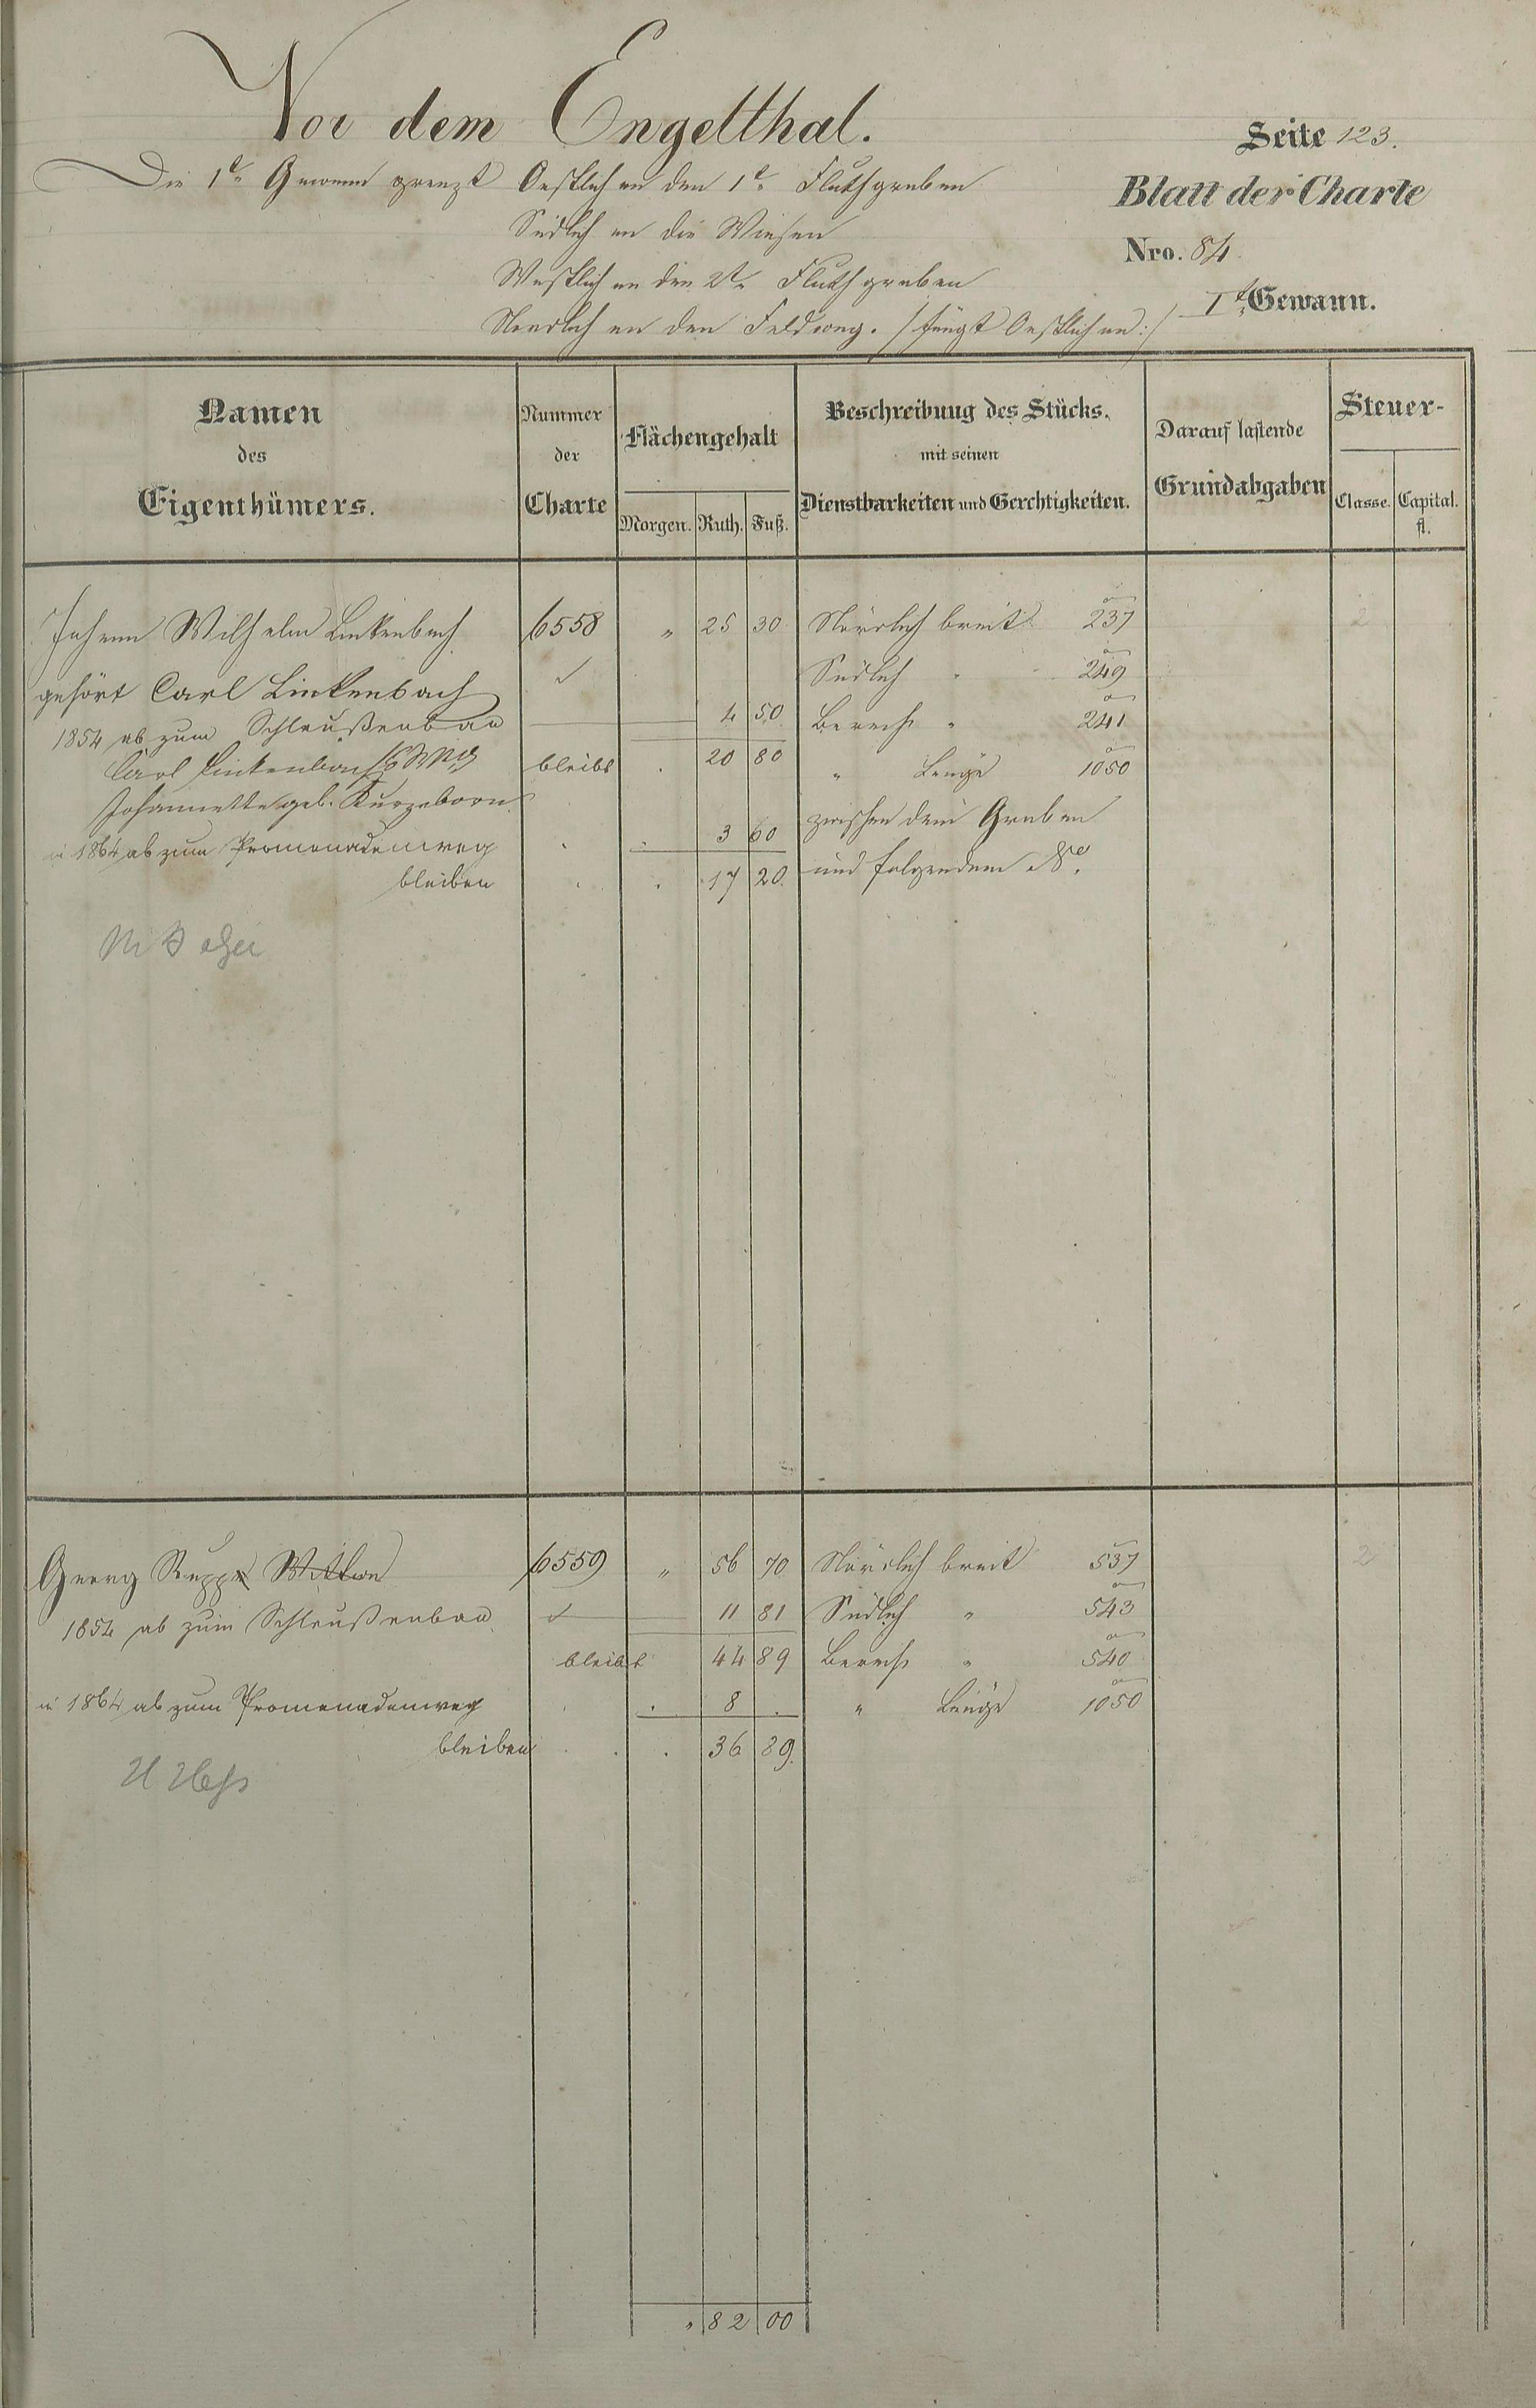 Vor dem Engelthal.
Seite 123.
Die 1te Gewann grenzt Oestlich an den 1te Fluthgraben
Blatt der Charte
Südlich an die Wiesen
Nro. 84
Westlich an den 2te Fluthgraben
Ite Gewann.
Nordlich an den Feldweg. /fängt Oestlich an:/
Namen des Eigenthümers.
Nummer der Charte
Flächengehalt
Morgen. Ruth. Fuß.
Beschreibung des Stücks.
mit seinen
Dienstbarkeiten und Gerechtigkeiten.
Darauf lastende
Grundabgaben
Steuer-
Classe. Capital.
fl.
Johann Wilhelm Linkenbach 6558 " 25 30 Nördlich breit 237
gehört Carl Linkenbach Südlich " 249
1854 ab zum Schleußenbau 4 50 Berech " 241
Carl Linkenbach bleibt . 20 80 " Länge 1050
Johannette geb. Kurzeborn zwischen dem Graben
in 1864 ab zum Promenadenweg 3 60
bleiben 17 20. und folgendem No.
Georg Rupp Wittwe 6559 " 56 70 Nördlich breit 537 2
1854 ab zum Schleußenbau 11 81 Südlich " 543
bleibt 44 89 Berech " 540
in 1864 ab zum Promenadenweg . . 8 . " Länge 1050
bleiben . . . 36 89.
H Heß
" 82 00